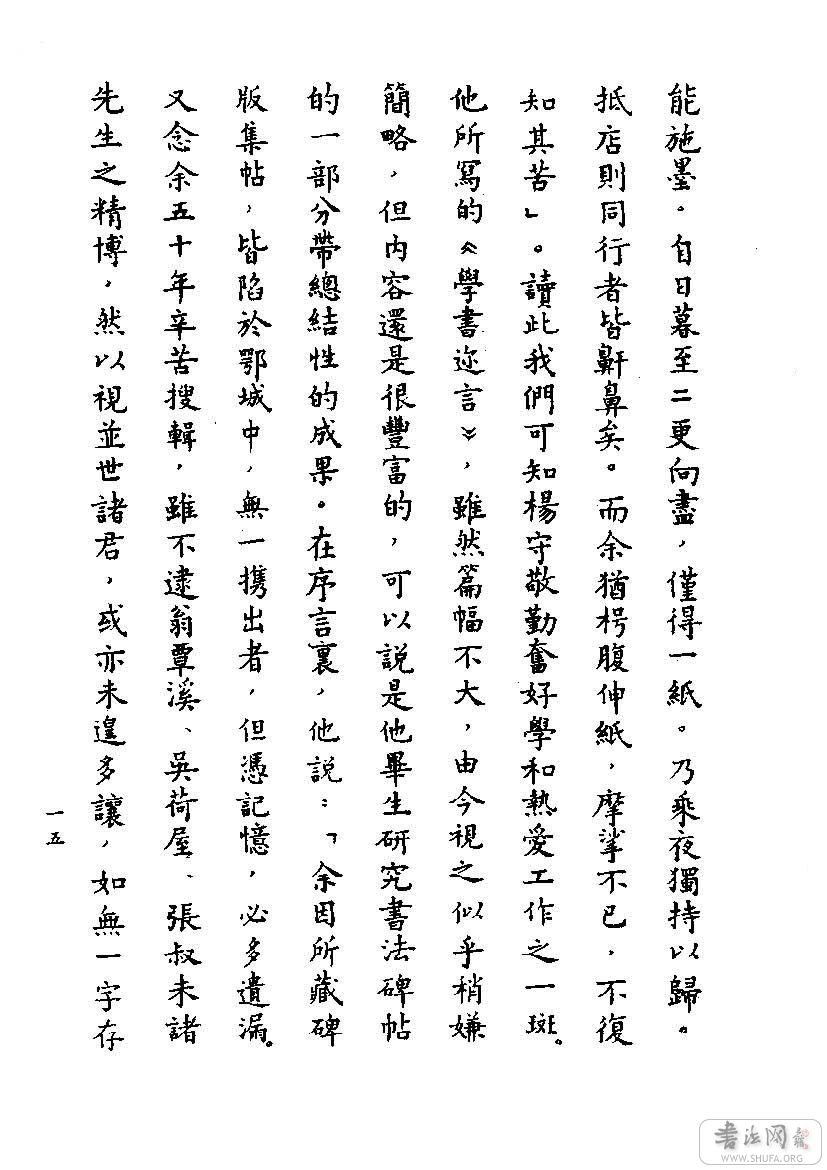 能施墨。自日暮至二更向盡，僅得一紙。乃乘夜獨持以歸。
抵店則同行者皆鼾鼻矣。而余猶枵腹伸紙，摩挲不已，不復
知其苦」。讀此我們可知楊守敬勤奮好學和熱愛工作之一斑。
他所寫的《學書迩言》，雖然篇幅不大，由今視之似乎稍嫌
簡略，但内容還是很豐富的，可以説是他畢生研究書法碑帖
的一部分帶總結性的成果。在序言裏，他説：「余因所藏碑
版集帖，皆陷於鄂城中，無一携出者，但憑記憶，必多遺漏。
又念余五十年辛苦搜輯，雖不逮翁覃溪、吳荷屋、張叔未諸
先生之精博，然以視並世諸君，或亦未遑多讓，如無一字存
一五
書法网
WWW.SHUFA.ORG